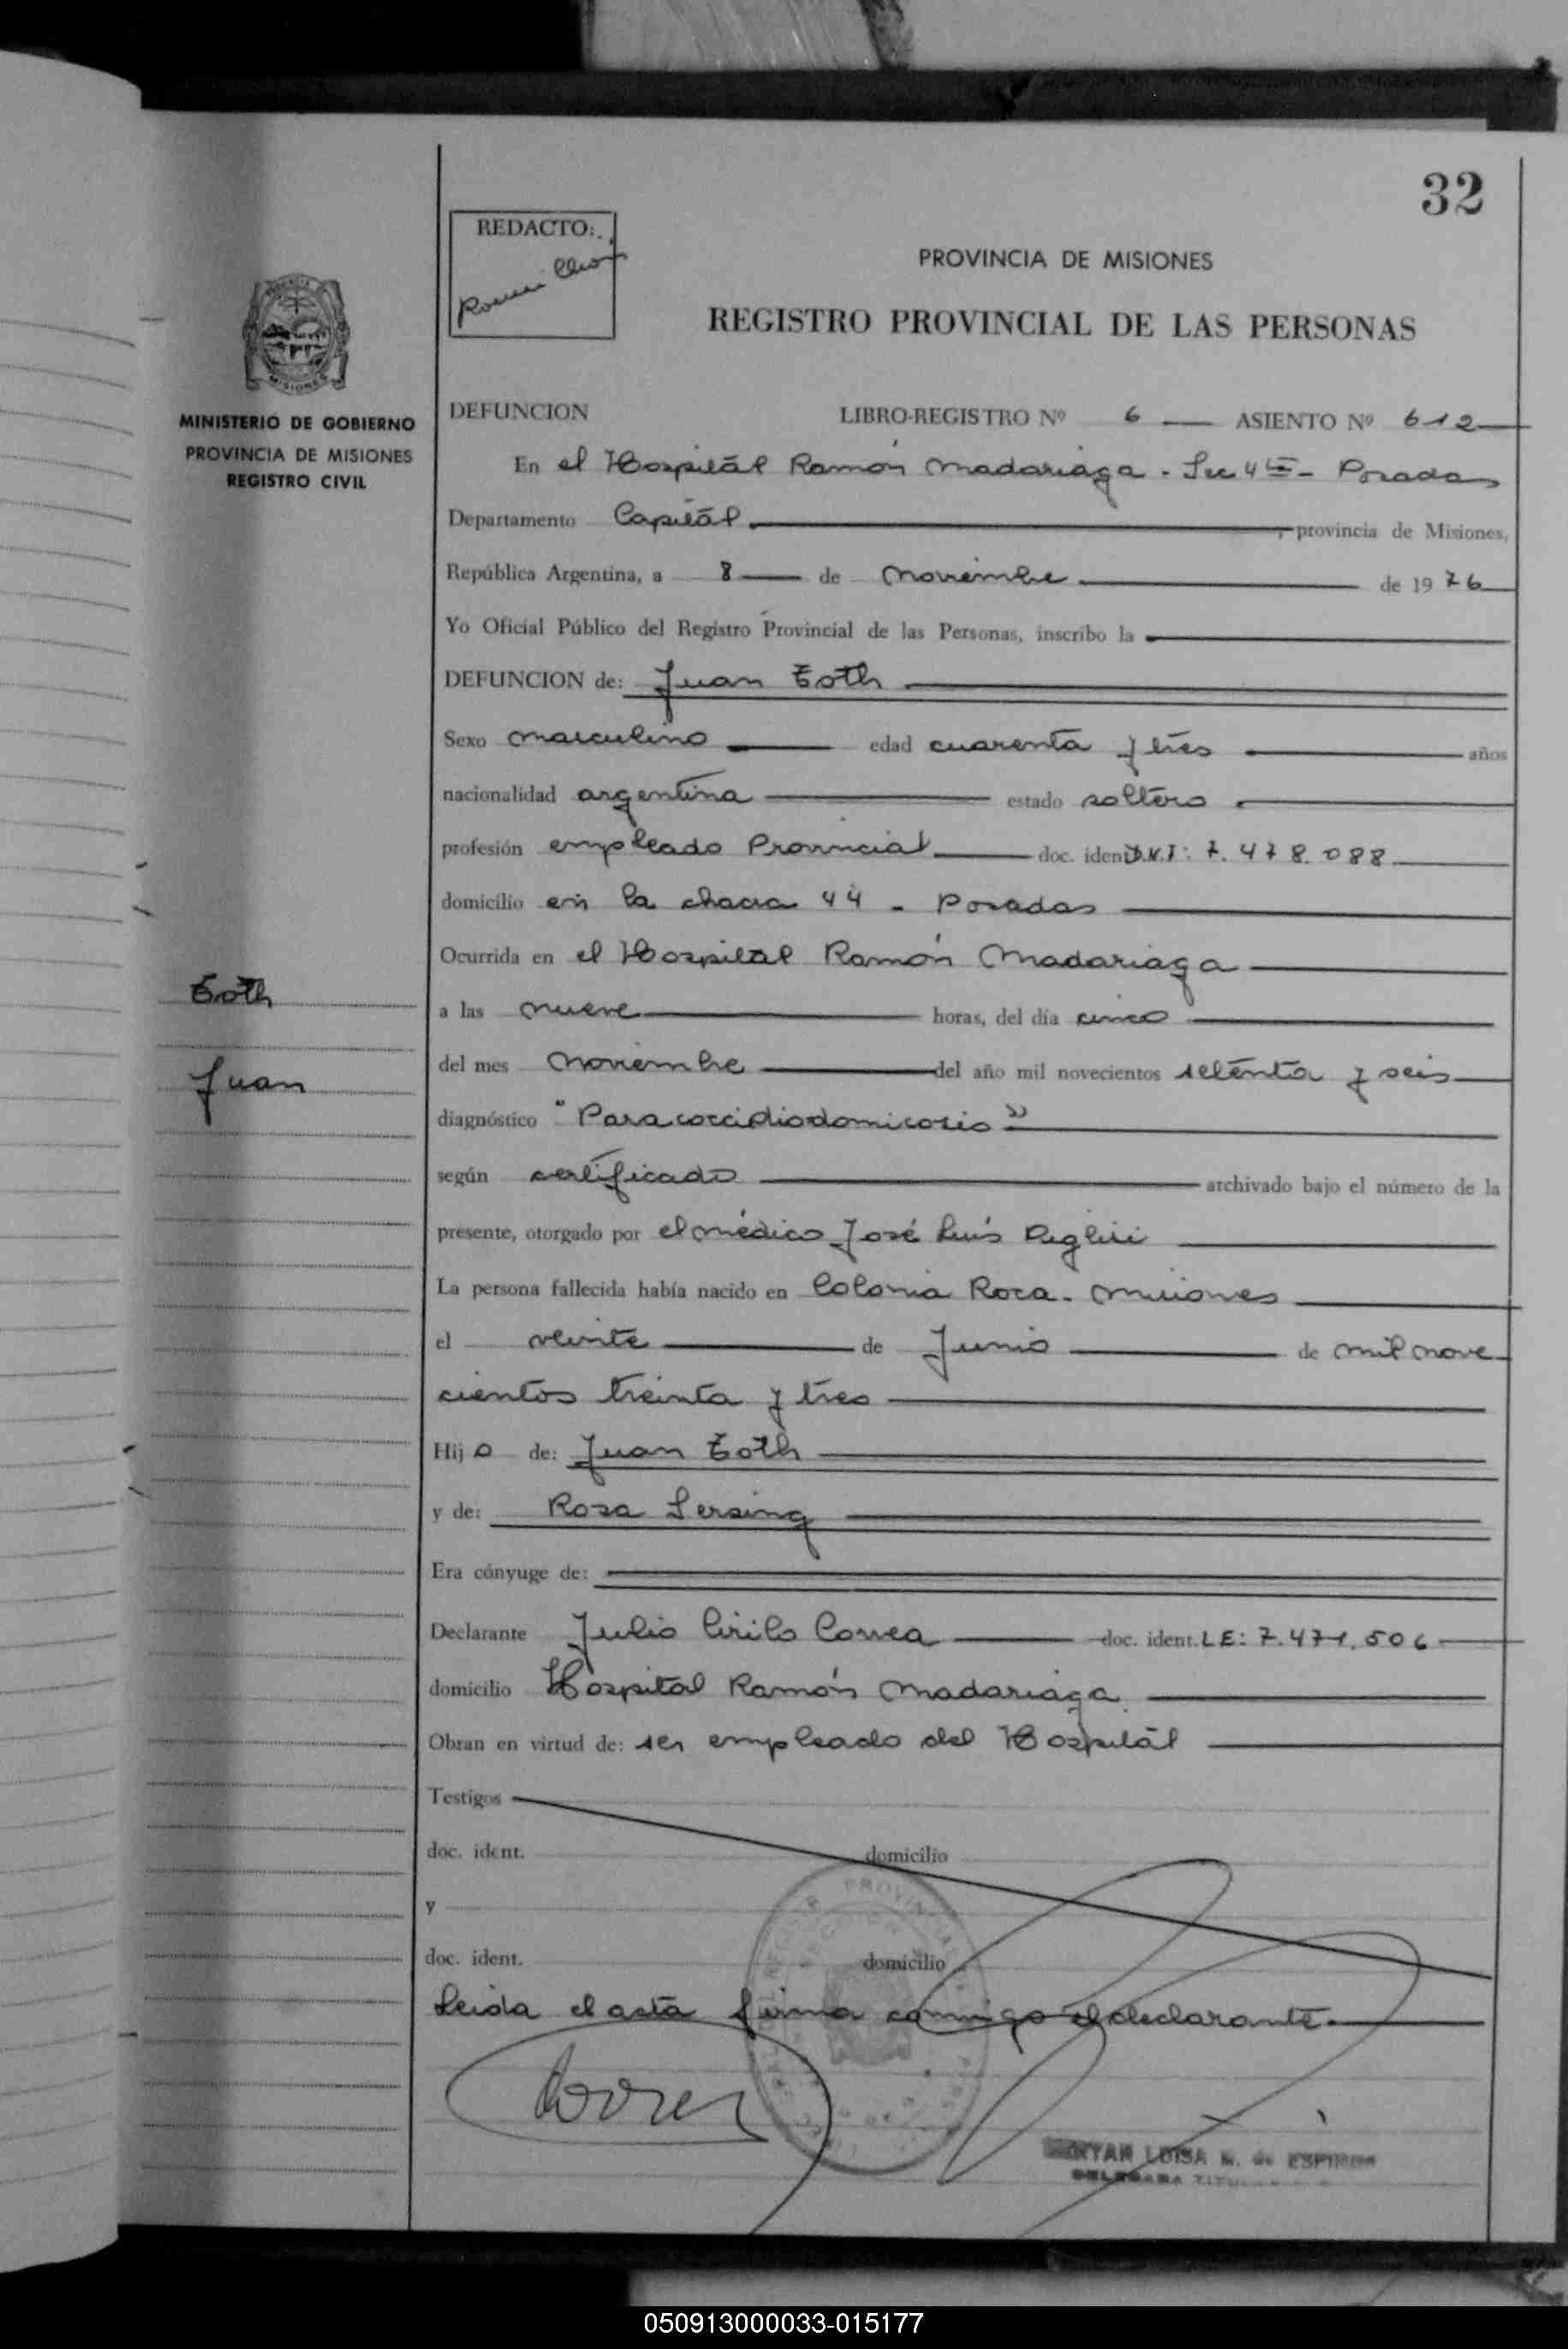 32
REDACTO:
PROVINCIA DE MISIONES
REGISTRO PROVINCIAL DE LAS PERSONAS
MISIONES
MINISTERIO DE GOBIERNO
PROVINCIA DE MISIONES
REGISTRO CIVIL
DEFUNCION LIBRO-REGISTRO Nº 6 ASIENTO Nº 612
En el Hospital Ramón Madariaga - Sec 4ta - Posadas
Departamento Capital, provincia de Misiones,
República Argentina, a 8 de noviembre de 1976
Yo Oficial Público del Registro Provincial de las Personas, inscribo la
DEFUNCION de: Juan Toth
Sexo masculino edad cuarenta y tres años
nacionalidad argentina estado soltero
profesión empleado Provincial doc. iden D.N.I: 7.478.088
domicilio en la chacra 44 - Posadas
Ocurrida en el Hospital Ramón Madariaga
Toth
a las nueve horas, del día cinco
Juan
del mes noviembre del año mil novecientos setenta y seis
diagnóstico "Paracoccidiodomicosis"
según certificado archivado bajo el número de la
presente, otorgado por el médico José Luis
La persona fallecida había nacido en Colonia Roca - Misiones
el veinte de Junio de mil nove
cientos treinta y tres
Hijo de: Juan Toth
y de: Rosa Sersing
Era cónyuge de:
Declarante Julio Cirilo Correa doc. ident. LE: 7.471.506
domicilio Hospital Ramón Madariaga
Obran en virtud de: ser empleado del Hospital
Testigos
doc. ident. domicilio
y
doc. ident. domicilio
Leida el acta firma conmigo el declarante.
LUISA
050913000033-015177